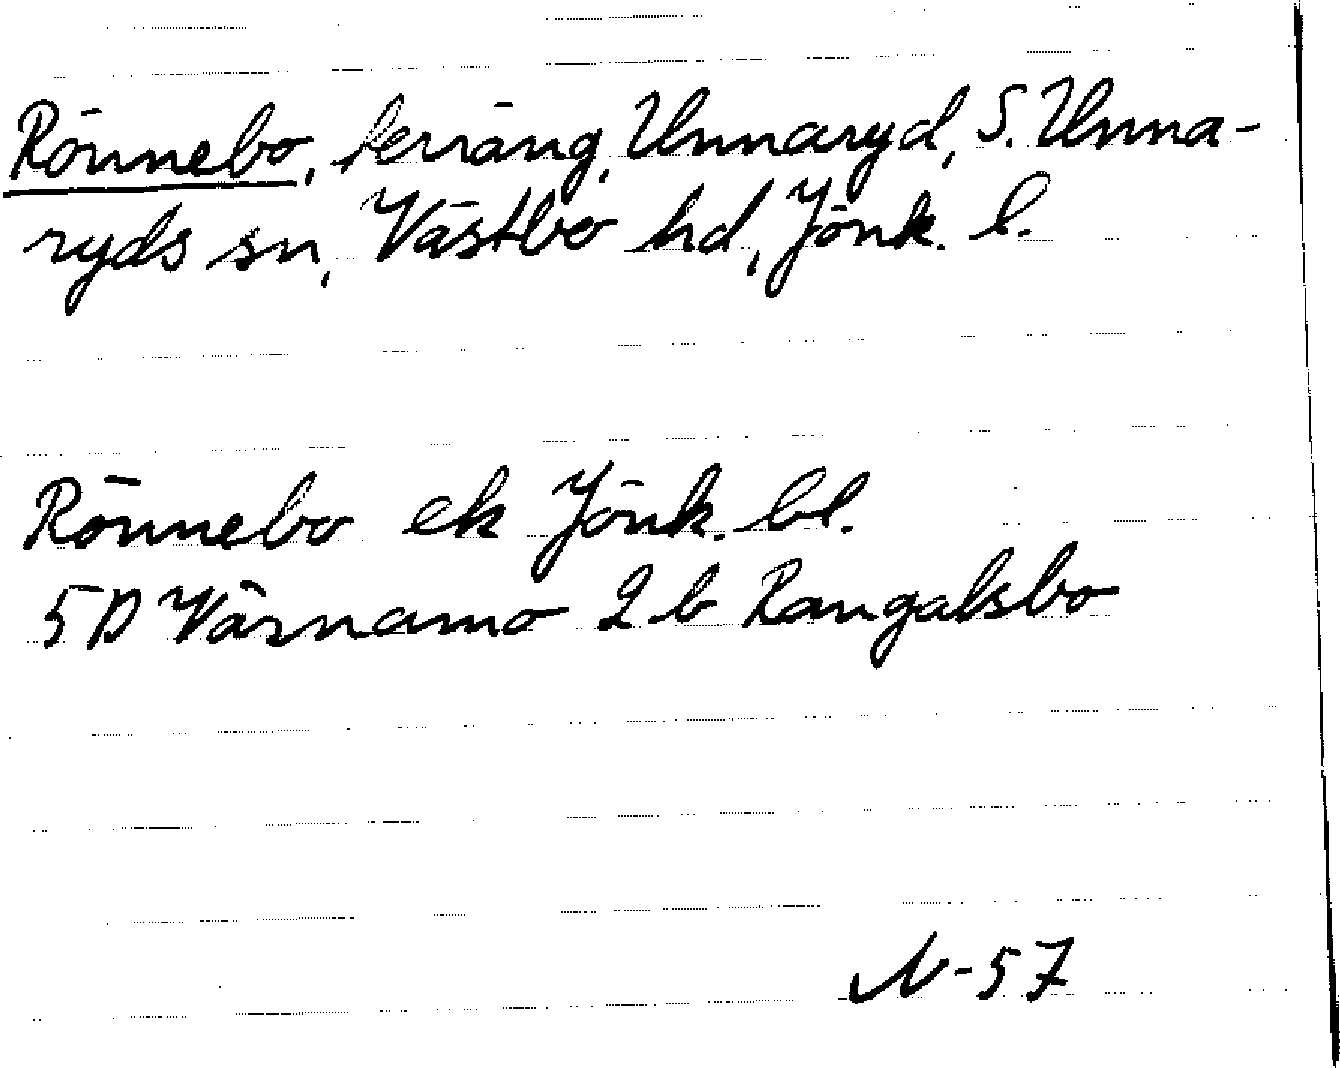 Rönnebo, terräng, Unnaryd, S. Unna-
ryds sn, Västbo hd, Jönk. l.
Rönnebo ek Jönk. bl.
5D Värnamo 2b Rangalsbo
N-57